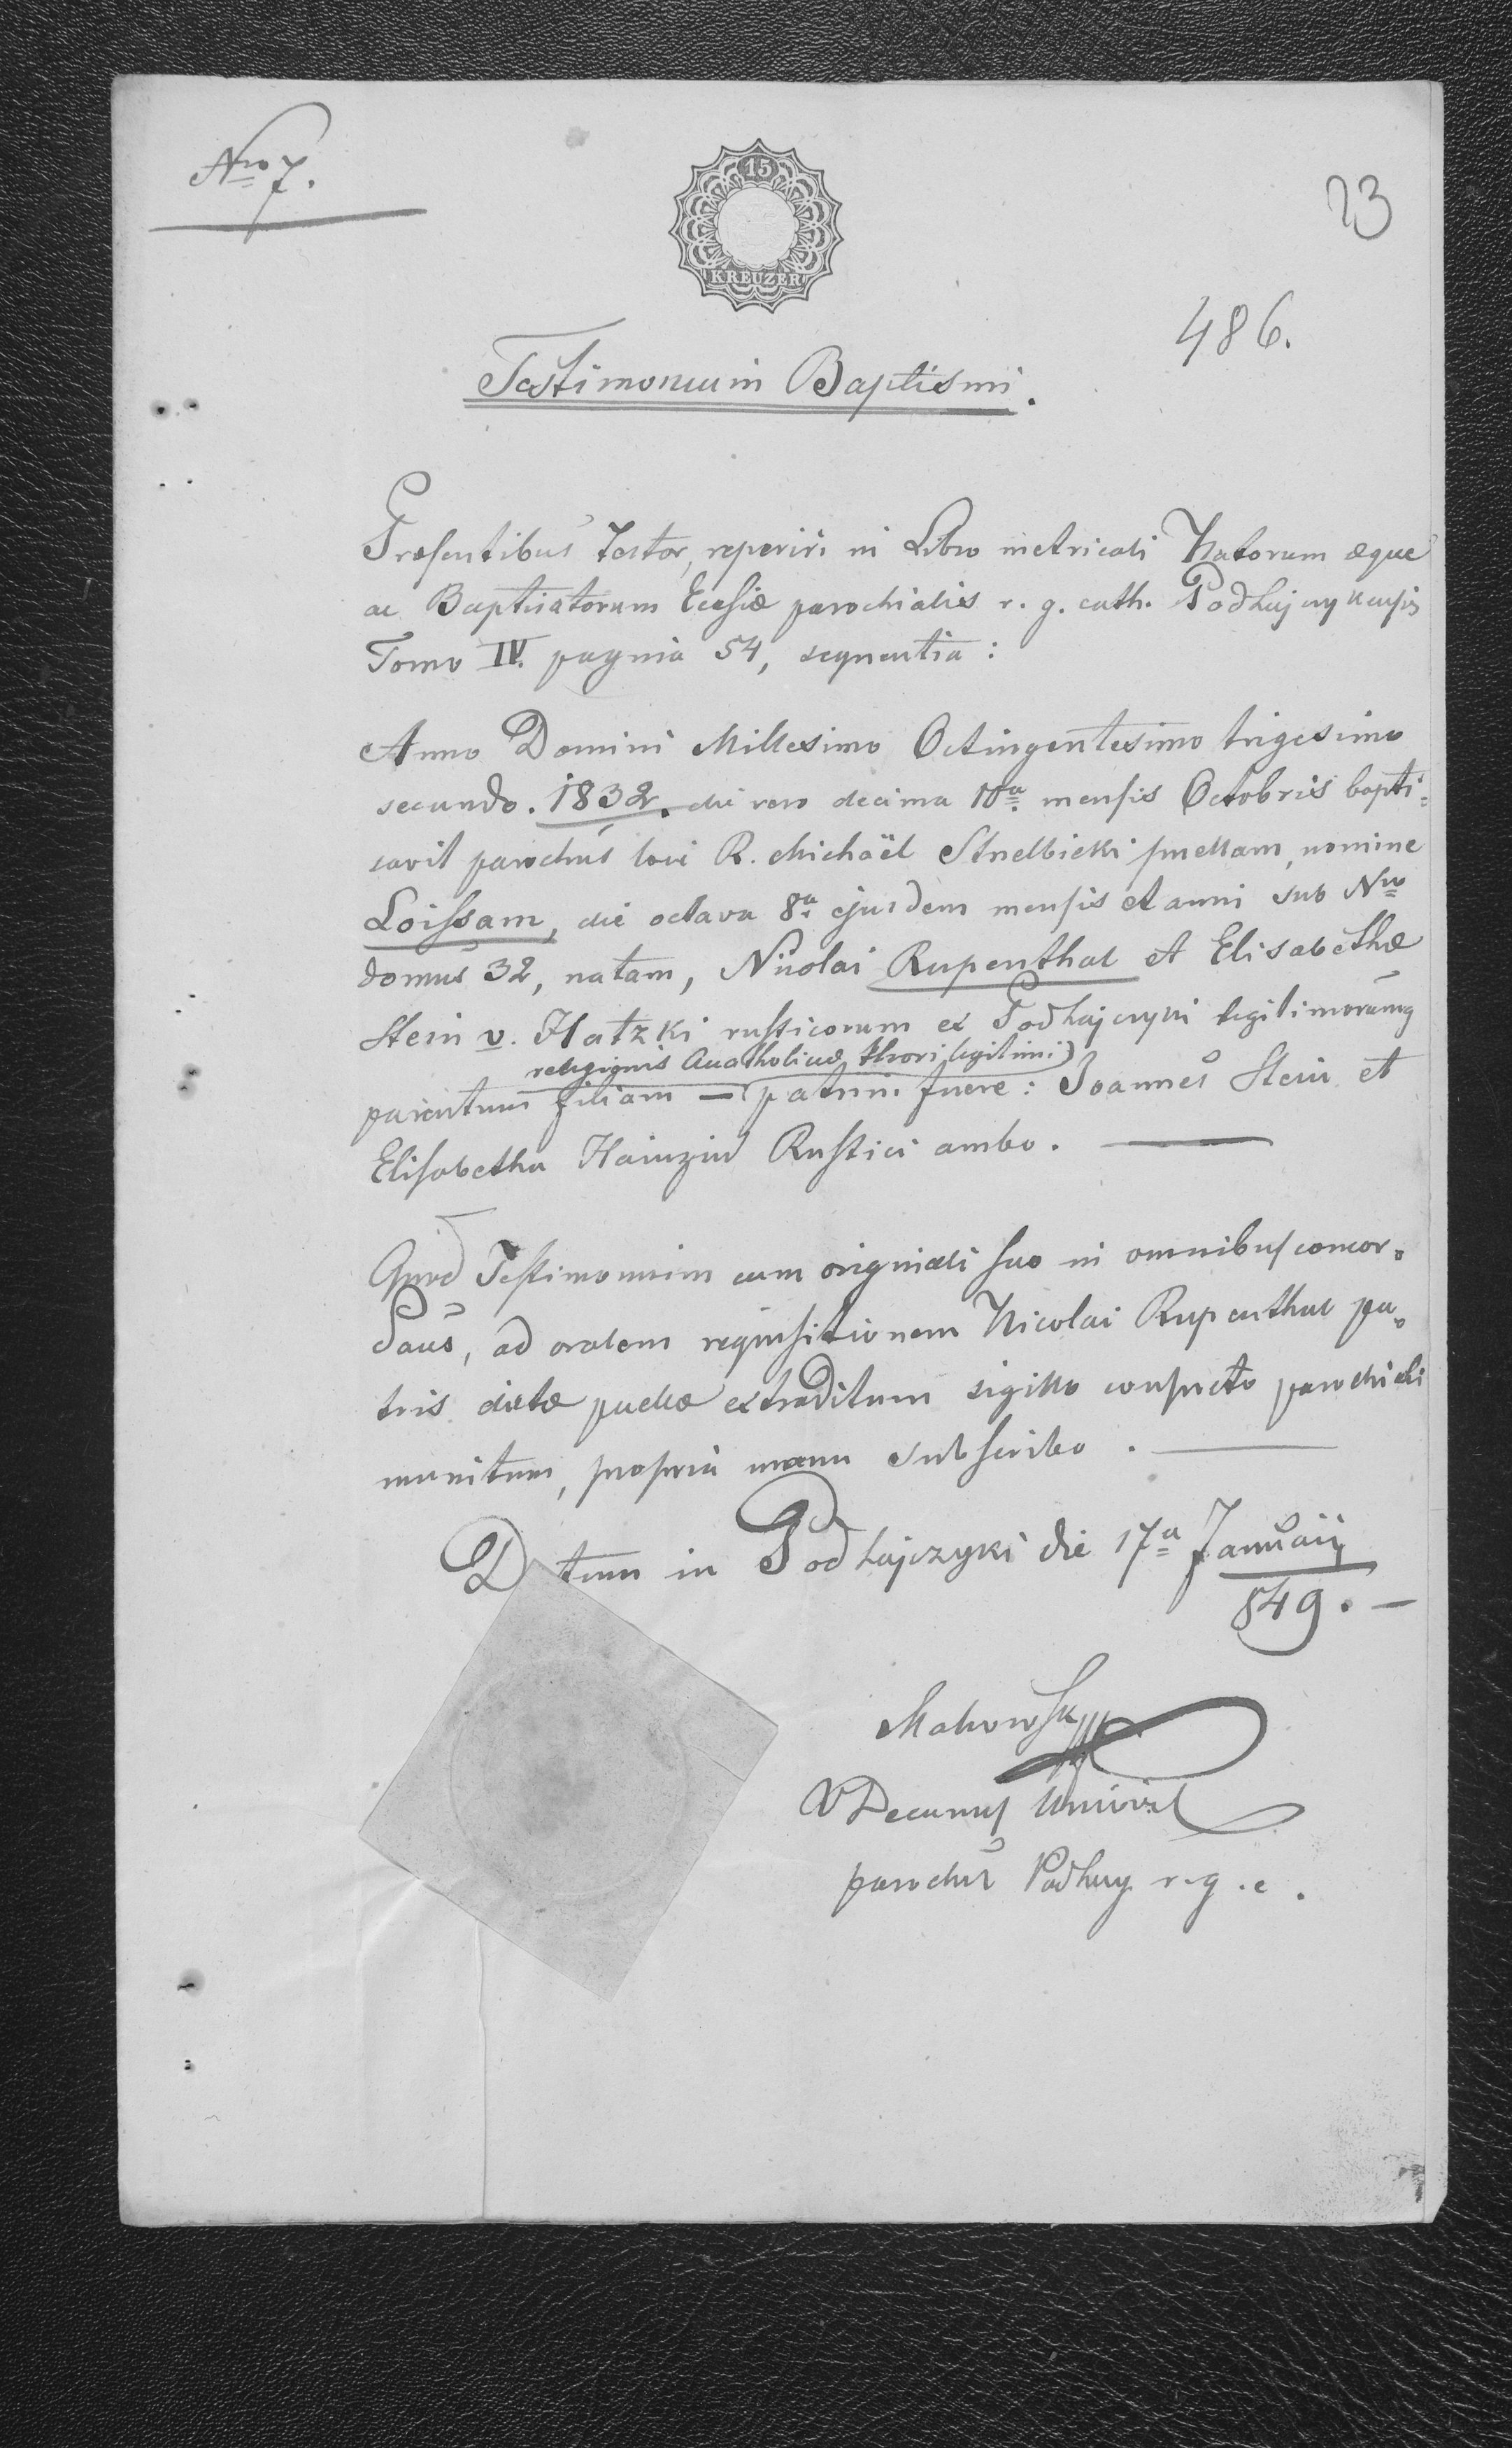 Nro 7.
15
KREUZER
23
486.
Testimonium Baptismi.
Præsentibus testor, reperiri in Libro metricali Natorum æque
ac Baptisatorum Eccsiæ parochialis r. g. cath. Podhajczykensis
Tomo IV. pagina 54, sequentia:
Anno Domini Millesimo Octingentesimo trigesimo
secundo. 1832. die vero decima 10a mensis Octobris bapti-
savit parochus loci R. Michaël Strelbicki puellam, nomine
Loissam, die octava 8a ejusdem mensis et anni sub Nro
domus 32, natam, Nicolai Rupenthal et Elisabethæ
Stein v. Hatzki rusticorum ex Podhajczyki legitimorumq
religionis Acatholicae thori legitimi)
parentum filiam — patrini fuere: Joannes Stein et
Elisabetha Hainzin Rustici ambo. —
Quod Testimonium cum originali suo in omnibus concor-
dans, ad oralem requisitionem Nicolai Rupenthal pa-
tris dictæ puellæ extraditum sigillo consueto parochiali
munitum, propria manu subscribo. —
Datum in Podhajczyki die 17a Januarij
849. —
Makowski
VDecanus
parochus Podhay r. g. c.